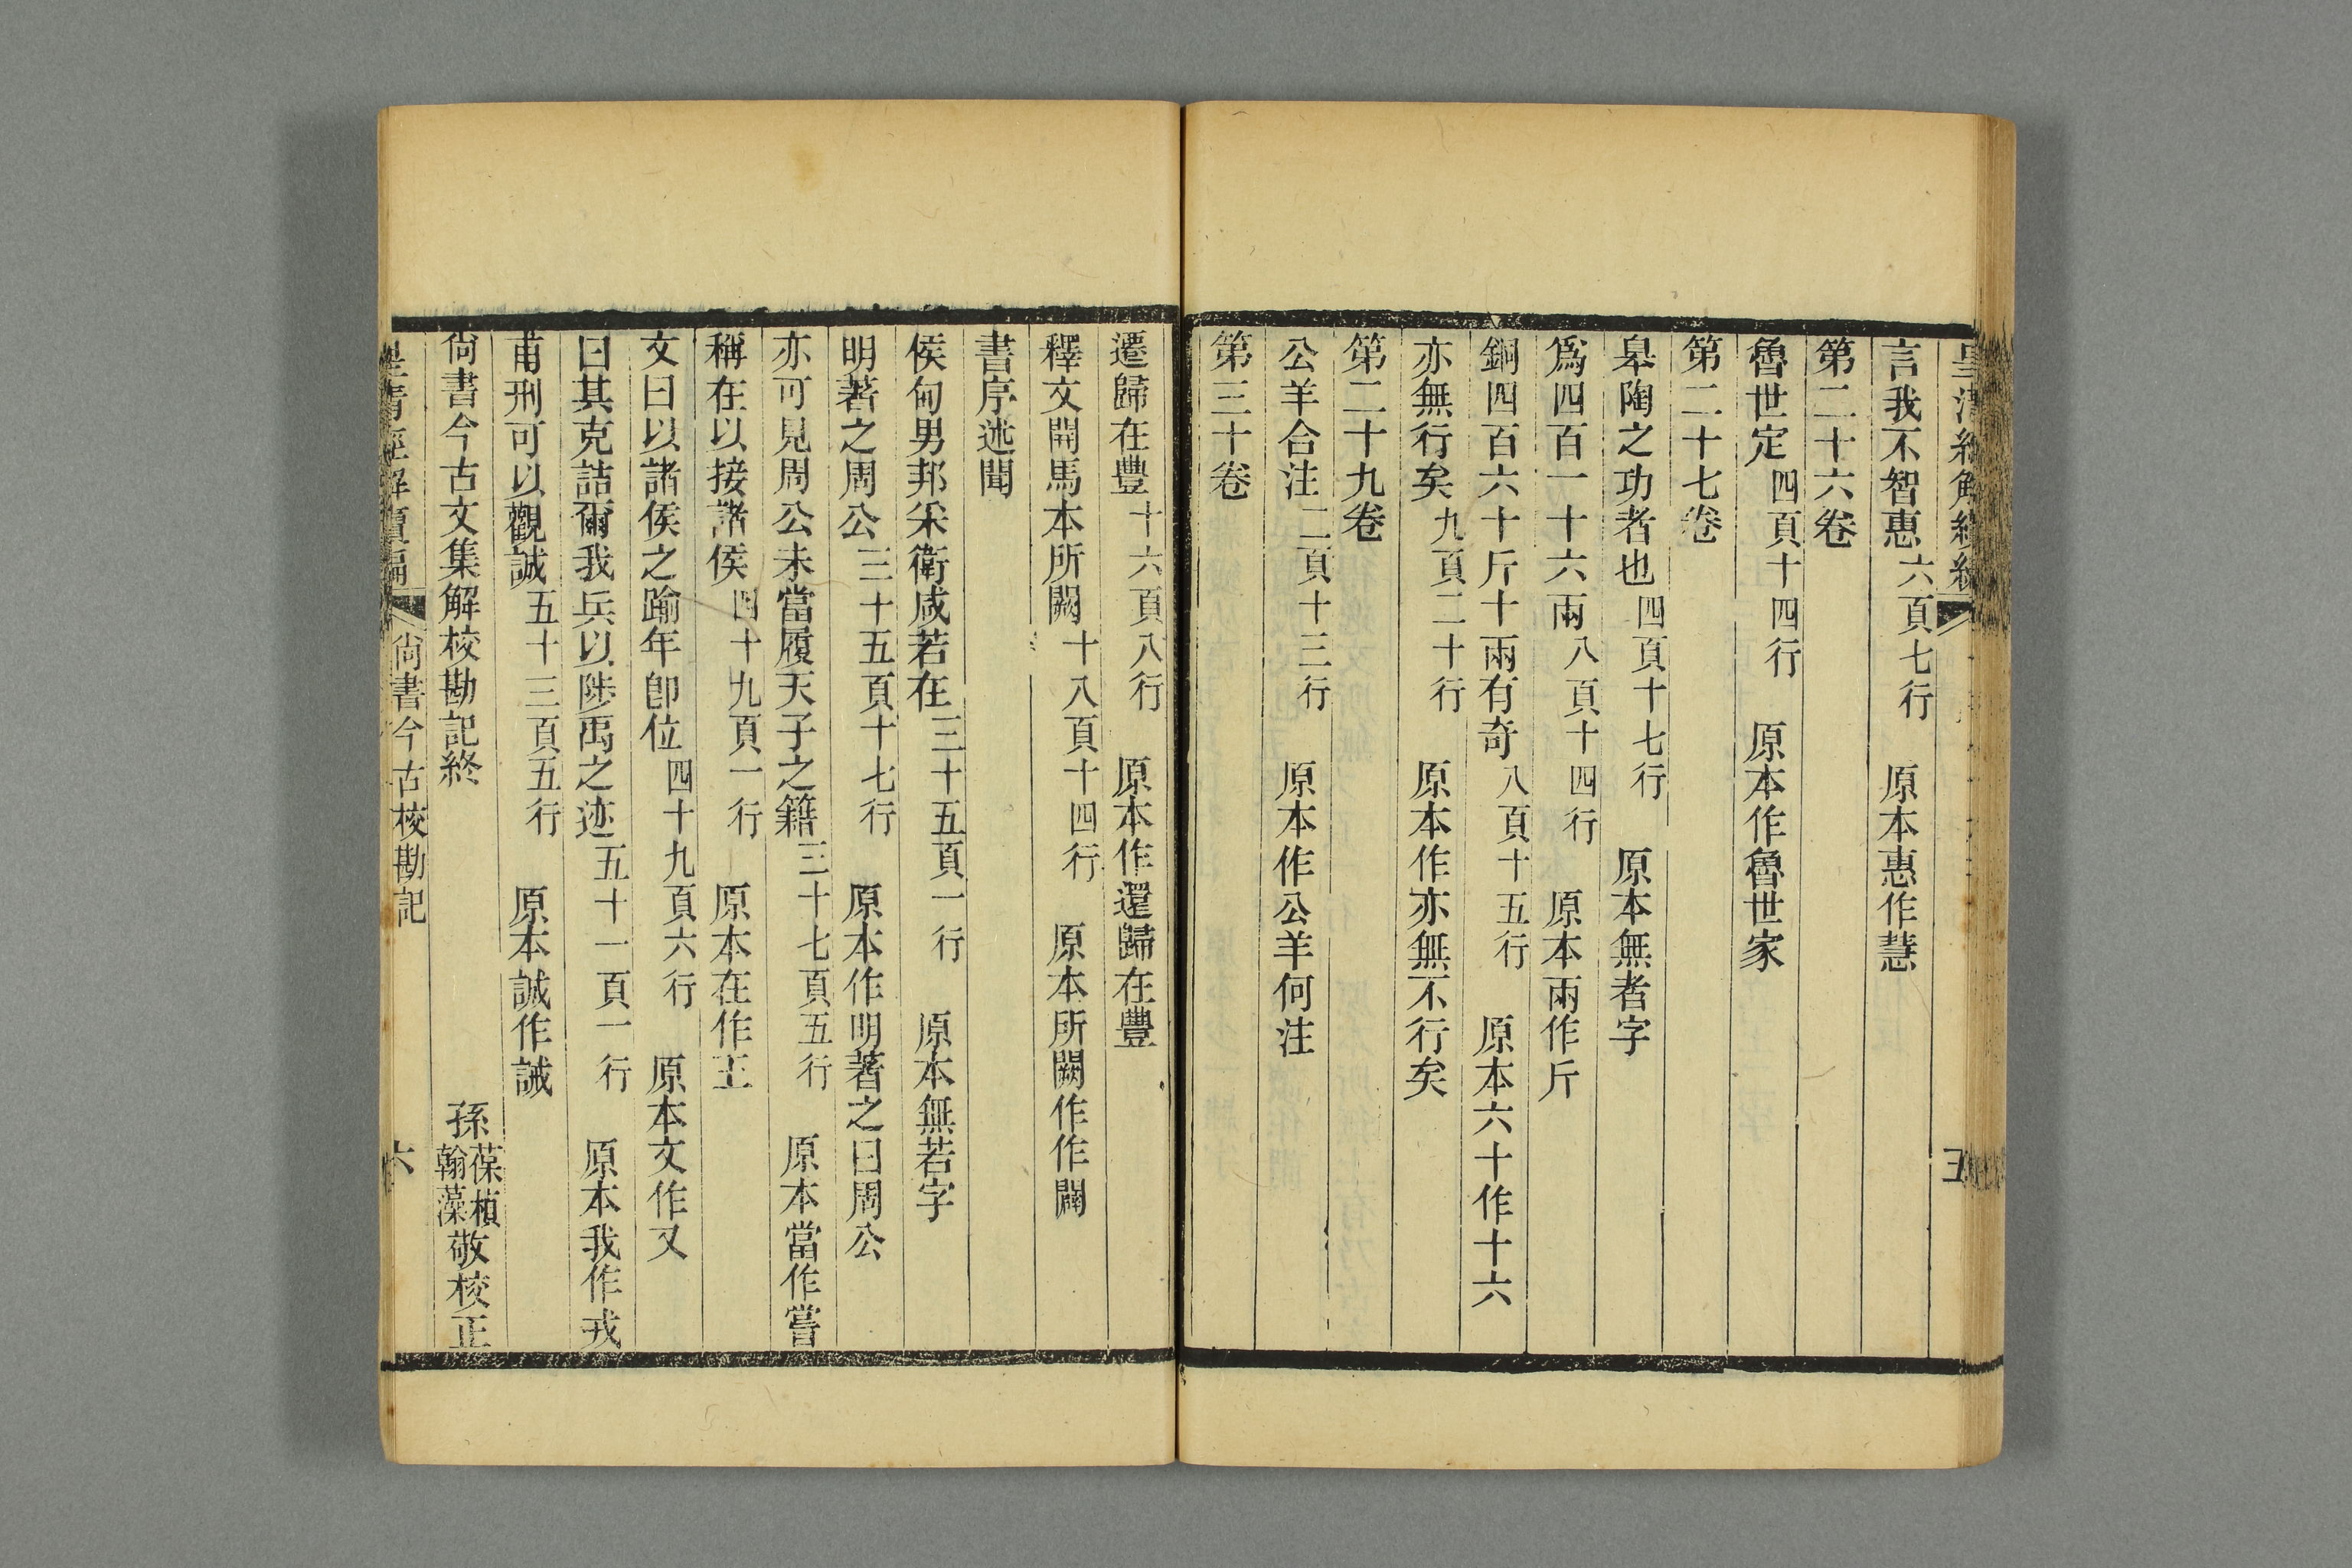 言我不智惠六頁七行　原本惠作慧
第二十六卷
魯世定四頁十四行　原本作魯世家
第二十七卷
皋陶之功者也四頁十七行　原本無者字
爲四百一十六兩八頁十四行　原本兩作斤
銅四百六十斤十兩有奇八頁十五行　原本六十作十六
亦無行矣九頁二十行　原本作亦無不行矣
第二十九卷
公羊合注二頁十三行　原本作公羊何注
第三十卷
遷歸在豐十六頁八行　原本作還歸在豐
釋文開馬本所闕十八頁十四行　原本所闕作作闢
書序述聞
侯甸男邦采衛咸若在三十五頁一行　原本無若字
明著之周公三十五頁十七行　原本作明著之曰周公
亦可見周公未當履天子之籍三十七頁五行　原本當作嘗
稱在以接諸侯四十九頁一行　原本在作王
文曰以諸侯之踰年卽位四十九頁六行　原本文作又
曰其克詰爾我兵以陟禹之迹五十一頁一行　原本我作戎
甫刑可以觀誠五十三頁五行　原本誠作誡
尙書今古文集解校勘記終　孫葆楨翰藻敬校正
皇清經解續編　尙書今古校勘記　六